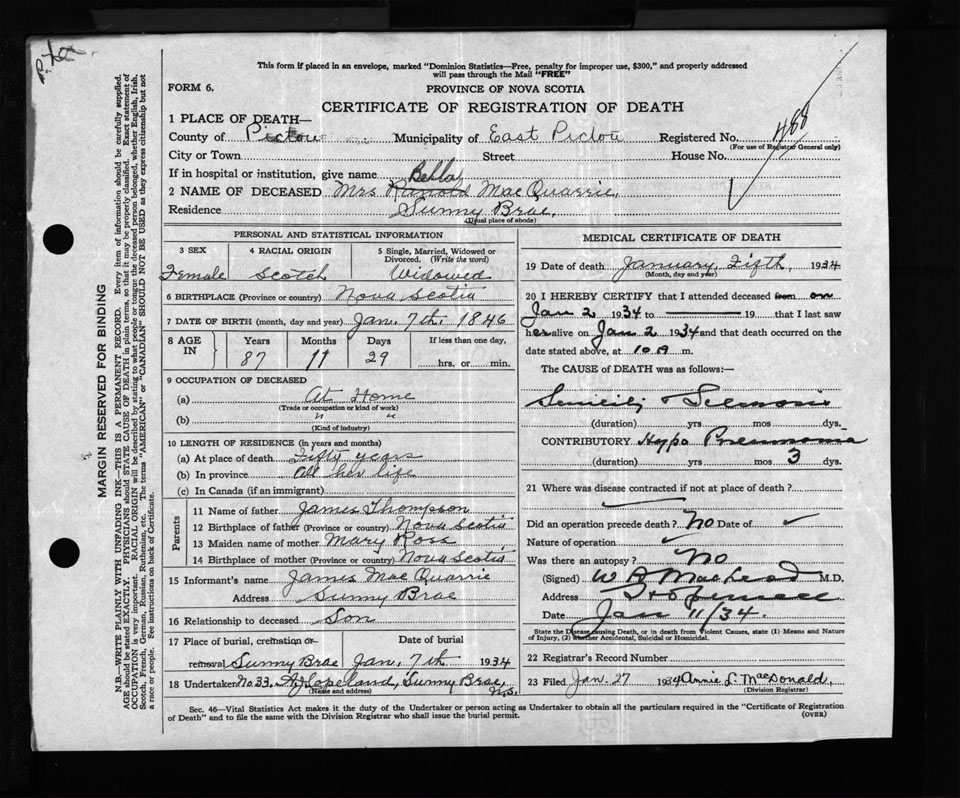 This form if placed in an envelope, marked "Dominion Statistics—Free, penalty for improper use, $300," and properly addressed
will pass through the Mail "FREE"
FORM 6.
PROVINCE OF NOVA SCOTIA
CERTIFICATE OF REGISTRATION OF DEATH
1 PLACE OF DEATH—
County of Pictou Municipality of East Pictou Registered No. 488
(For use of Registrar General only)
City or Town Street House No.
If in hospital or institution, give name
Bella
2 NAME OF DECEASED Mrs Ranold MacQuarrie,
Residence Sunny Brae,
(Usual place of abode)
PERSONAL AND STATISTICAL INFORMATION
3 SEX 4 RACIAL ORIGIN 5 Single, Married, Widowed or
Divorced. (Write the word)
Female Scotch Widowed
6 BIRTHPLACE (Province or country) Nova Scotia
7 DATE OF BIRTH (month, day and year) Jan. 7th, 1846
8 AGE IN Years Months Days If less than one day,
87 11 29 hrs. or min.
9 OCCUPATION OF DECEASED
(a) At Home
(Trade or occupation or kind of work)
(b) " "
(Kind of industry)
10 LENGTH OF RESIDENCE (in years and months)
(a) At place of death Fifty years
(b) In province All her life
(c) In Canada (if an immigrant)
Parents
11 Name of father James Thompson
12 Birthplace of father (Province or country) Nova Scotia
13 Maiden name of mother Mary Ross
14 Birthplace of mother (Province or country) Nova Scotia
15 Informant's name James MacQuarrie
Address Sunny Brae
16 Relationship to deceased Son
17 Place of burial, cremation or Date of burial
removal Sunny Brae Jan. 7th 1934
18 Undertaker No 33. Copeland, Sunny Brae, N.S.
(Name and address)
MEDICAL CERTIFICATE OF DEATH
19 Date of death January, Fifth, 1934
(Month, day and year)
20 I HEREBY CERTIFY that I attended deceased from on
Jan 2 1934 to 19 that I last saw
her alive on Jan 2 1934 and that death occurred on
date stated above, at 10 A m.
The CAUSE of DEATH was as follows:
(duration) yrs mos dys.
CONTRIBUTORY Hypo Pneumonia
(duration) yrs mos 3 dys.
21 Where was disease contracted if not at place of death?
Did an operation precede death? No Date of ✓
Nature of operation ✓
Was there an autopsy? No
(Signed) MacLeod M.D.
Address Hopewell
Date Jan 11/34.
State the Disease causing Death, or in death from Violent Causes, state (1) Means and Nature
of Injury, (2) whether Accidental, Suicidal or Homicidal.
22 Registrar's Record Number
23 Filed Jan. 27 1934 Annie L. MacDonald,
(Division Registrar)
Sec. 46—Vital Statistics Act makes it the duty of the Undertaker or person acting as Undertaker to obtain all the particulars required in the "Certificate of Registration
of Death" and to file the same with the Division Registrar who shall issue the burial permit.
(OVER)
MARGIN RESERVED FOR BINDING
N.B.—WRITE PLAINLY WITH UNFADING INK—THIS IS A PERMANENT RECORD. Every item of information should be carefully supplied.
AGE should be stated EXACTLY. PHYSICIANS should STATE CAUSE OF DEATH in plain terms, so that it may be properly classified. Exact statement of
OCCUPATION is very important. RACIAL ORIGIN will be described by stating to what people or tongue the deceased person belonged, whether English, Irish,
Scotch, French, German, Russian, Ruthenian, etc. The terms "AMERICAN" or "CANADIAN" SHOULD NOT BE USED as they express citizenship but not
a race or people. See instructions on back of Certificate.